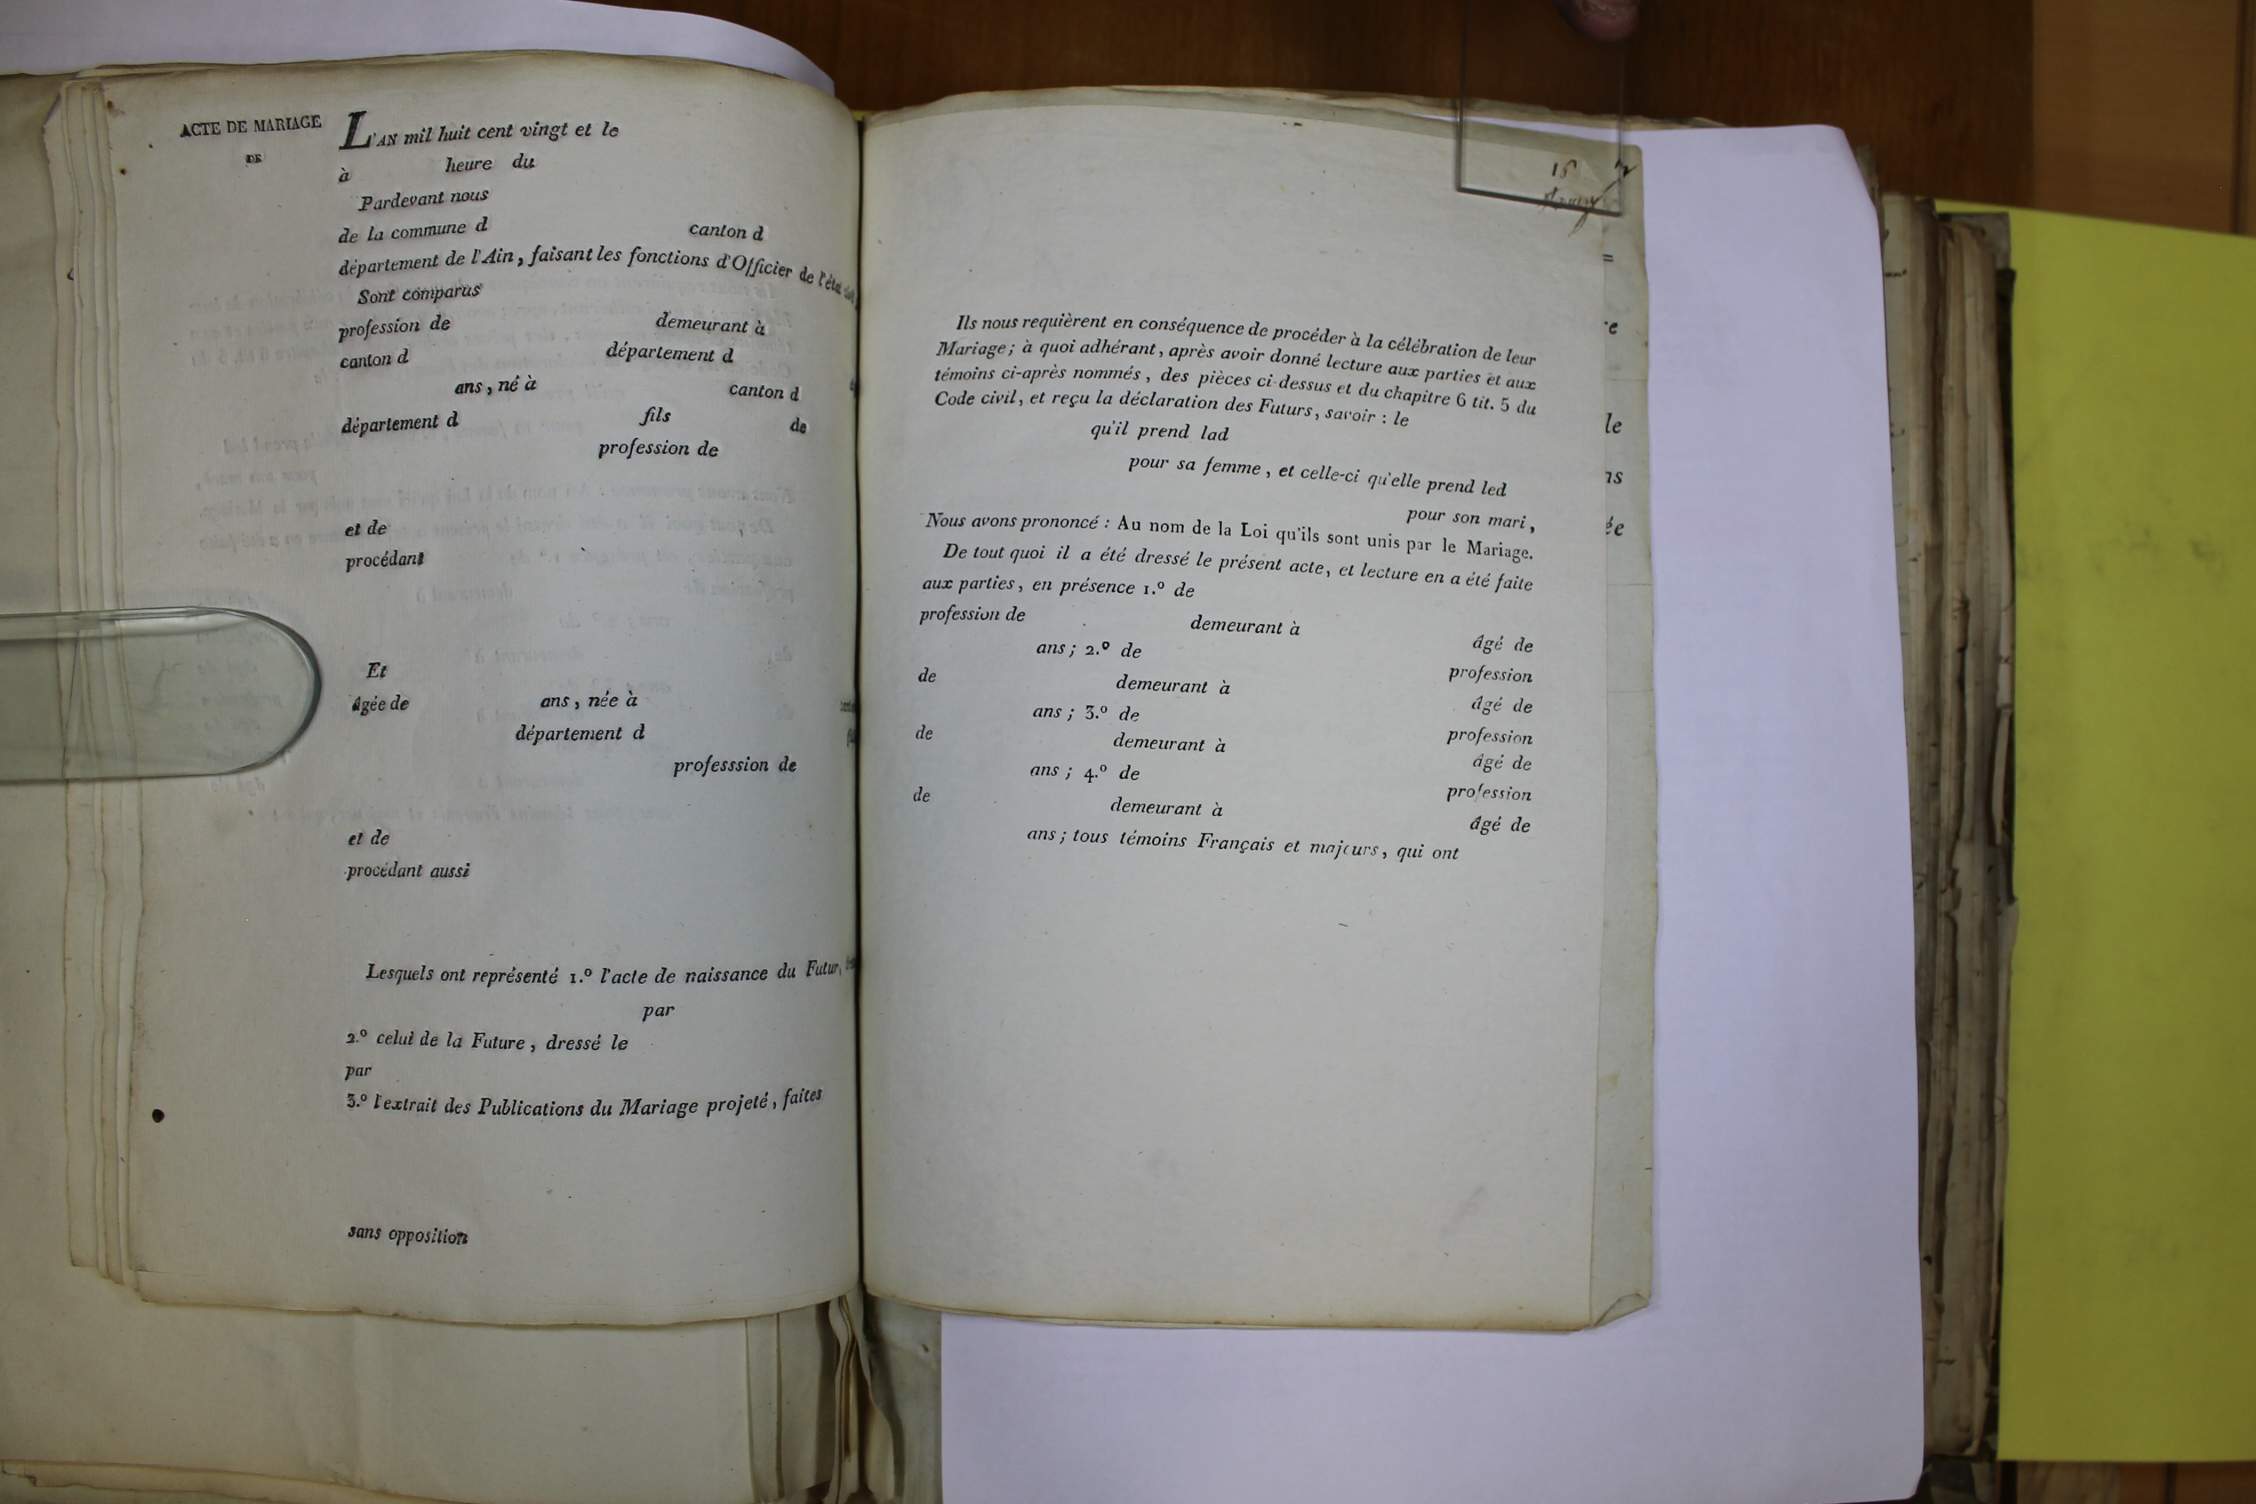 ACTE DE MARIAGE
DE
L'AN mil huit cent vingt et le
à heure du
Pardevant nous
de la commune d canton d
département de l'Ain, faisant les fonctions d'Officier de l'état
Sont comparus
profession de demeurant à
canton d département d
ans, né à canton d
département d fils de
profession de
et de
procédant
Et
âgée de ans, née à
département d
professsion de
et de
procédant aussi
Lesquels ont représenté 1.º l'acte de naissance du Futur,
par
2.º celui de la Future, dressé le
par
3.º l'extrait des Publications du Mariage projeté, faites
sans opposition
15
Ils nous requièrent en conséquence de procéder à la célébration de leur
Mariage; à quoi adhérant, après avoir donné lecture aux parties et aux
témoins ci-après nommés, des pièces ci-dessus et du chapitre 6 tit. 5 du
Code civil, et reçu la déclaration des Futurs, savoir : le
qu'il prend lad
pour sa femme, et celle-ci qu'elle prend led
pour son mari,
Nous avons prononcé : Au nom de la Loi qu'ils sont unis par le Mariage.
De tout quoi il a été dressé le présent acte, et lecture en a été faite
aux parties, en présence 1.º de
profession de demeurant à âgé de
ans; 2.º de profession
de demeurant à âgé de
ans; 3.º de profession
de demeurant à âgé de
ans; 4.º de profession
de demeurant à âgé de
ans; tous témoins Français et majeurs, qui ont